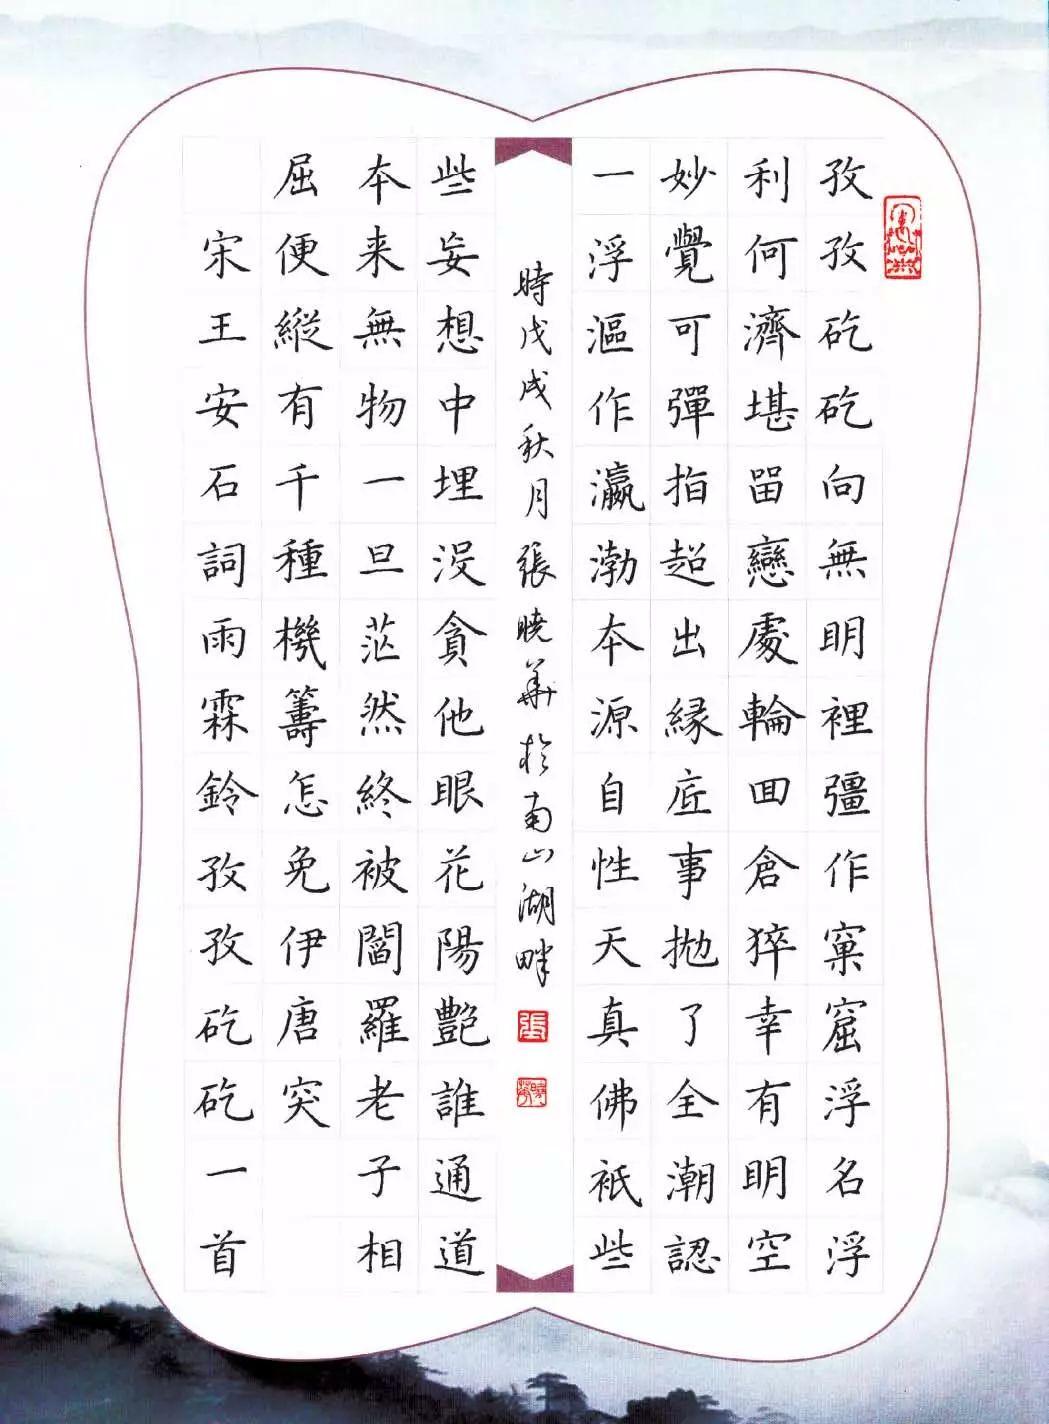 孜孜矻矻向無明裡彊作窠窟浮名浮
利何濟堪留戀處輪回倉猝幸有明空
妙覺可彈指超出緣底事拋了全潮認
一浮漚作瀛渤本源自性天真佛祇些
些妄想中埋沒貪他眼花陽艷誰通道
本来無物一旦茫然終被閻羅老子相
屈便縱有千種機籌怎免伊唐突
宋王安石詞雨霖鈴孜孜矻矻一首
時戊戌秋月張曉華於南山湖畔
張